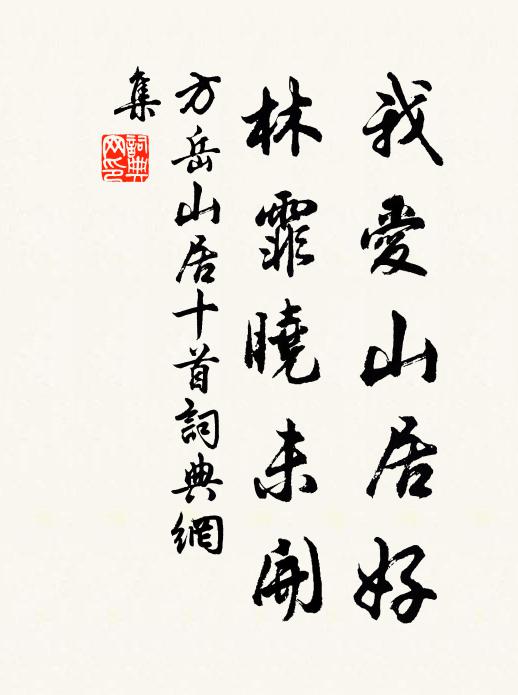 我愛山居好
林霏曉未開
方岳山居十首詞典網
集
詞典
网印